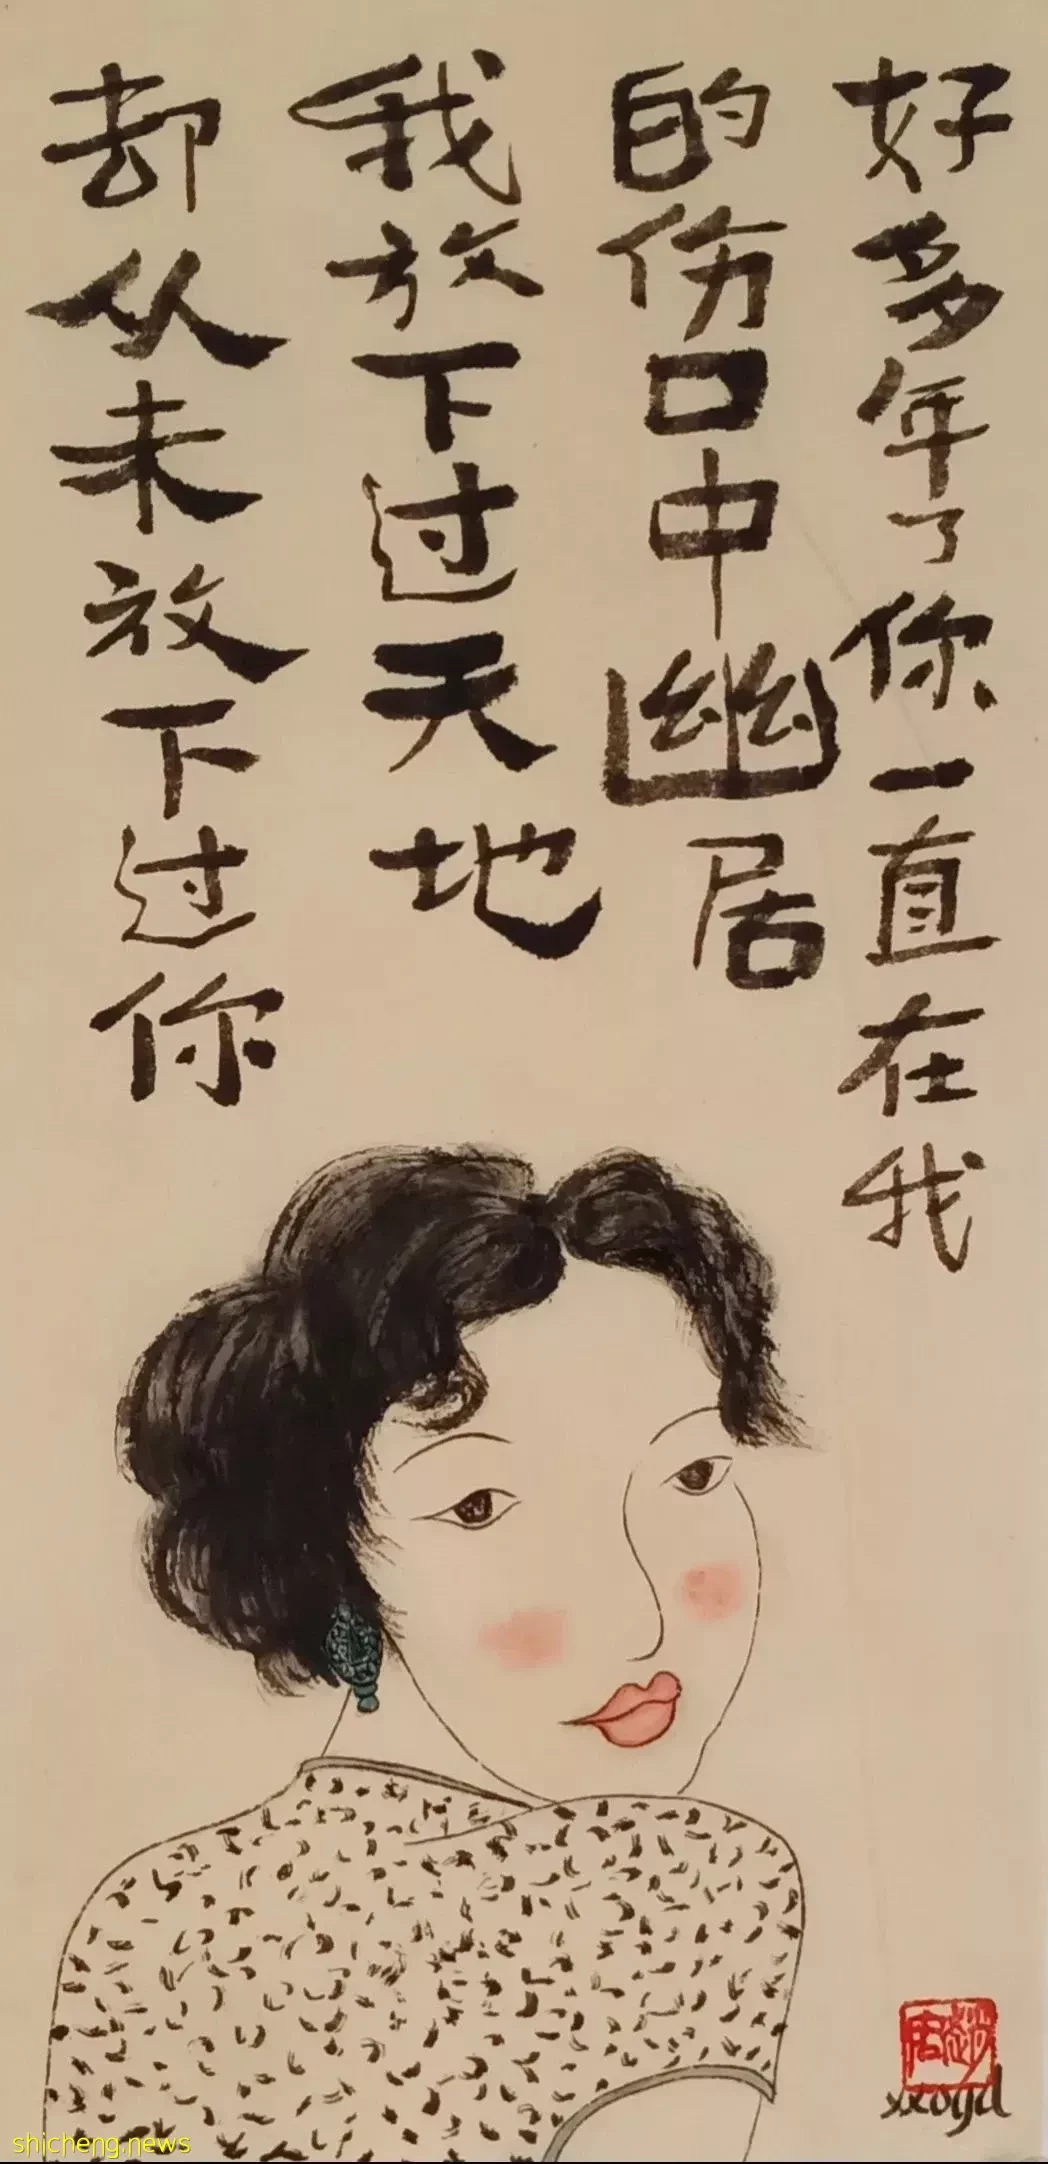 好多年了你一直在我
的伤口中幽居
我放下过天地
却从未放下过你
xxogd
shicheng.news